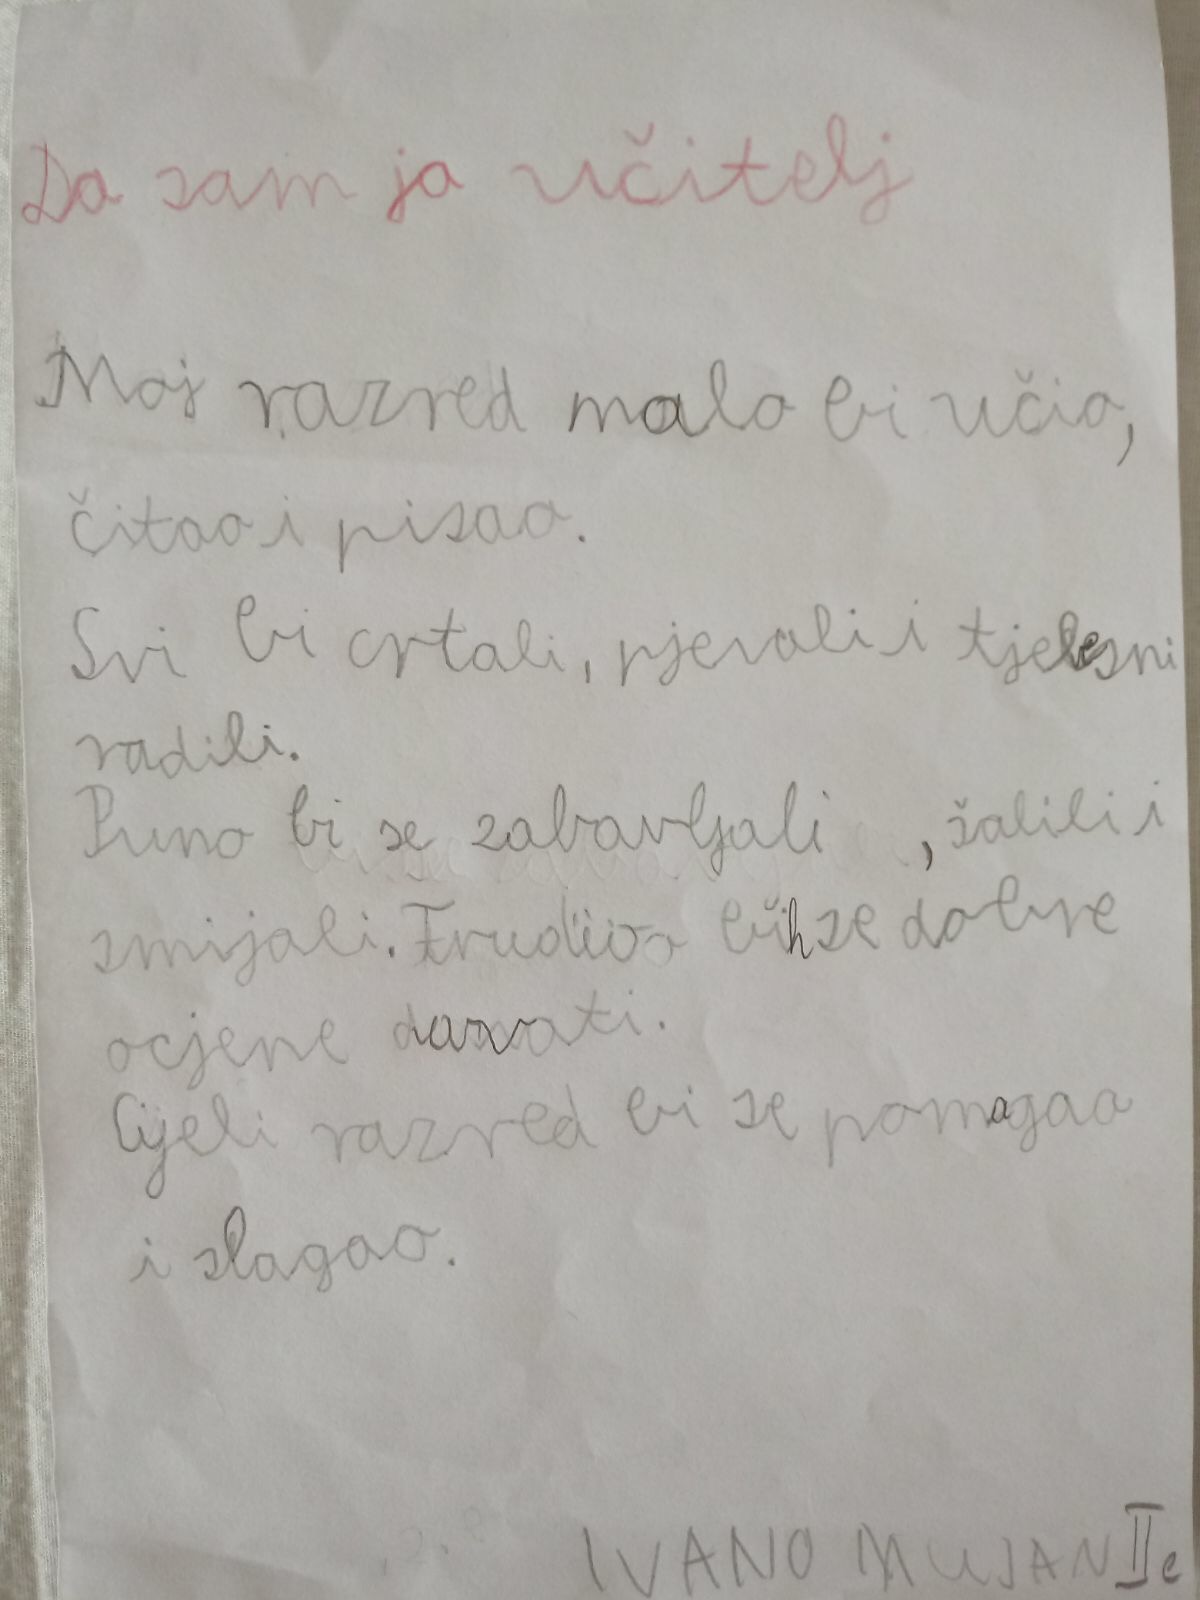 Da sam ja učitelj
Moj razred malo bi učio,
čitao i pisao.
Svi bi crtali, pjevali i tjelesni
radili.
Puno bi se zabavljali , šalili i
smijali. Trudio bih se dobre
ocjene davati.
Cijeli razred bi se pomagao
i slagao.
IVANO MUJAN IIe